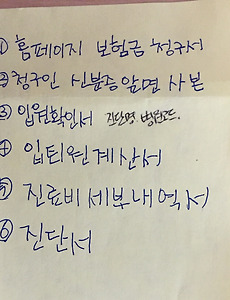 ① 홈페이지 보험금 청구서
② 청구인 신분증 앞면 사본
③ 입원확인서 진단명. 병원코드.
④ 입퇴원계산서
⑤ 진료비세부내역서
⑥ 진단서